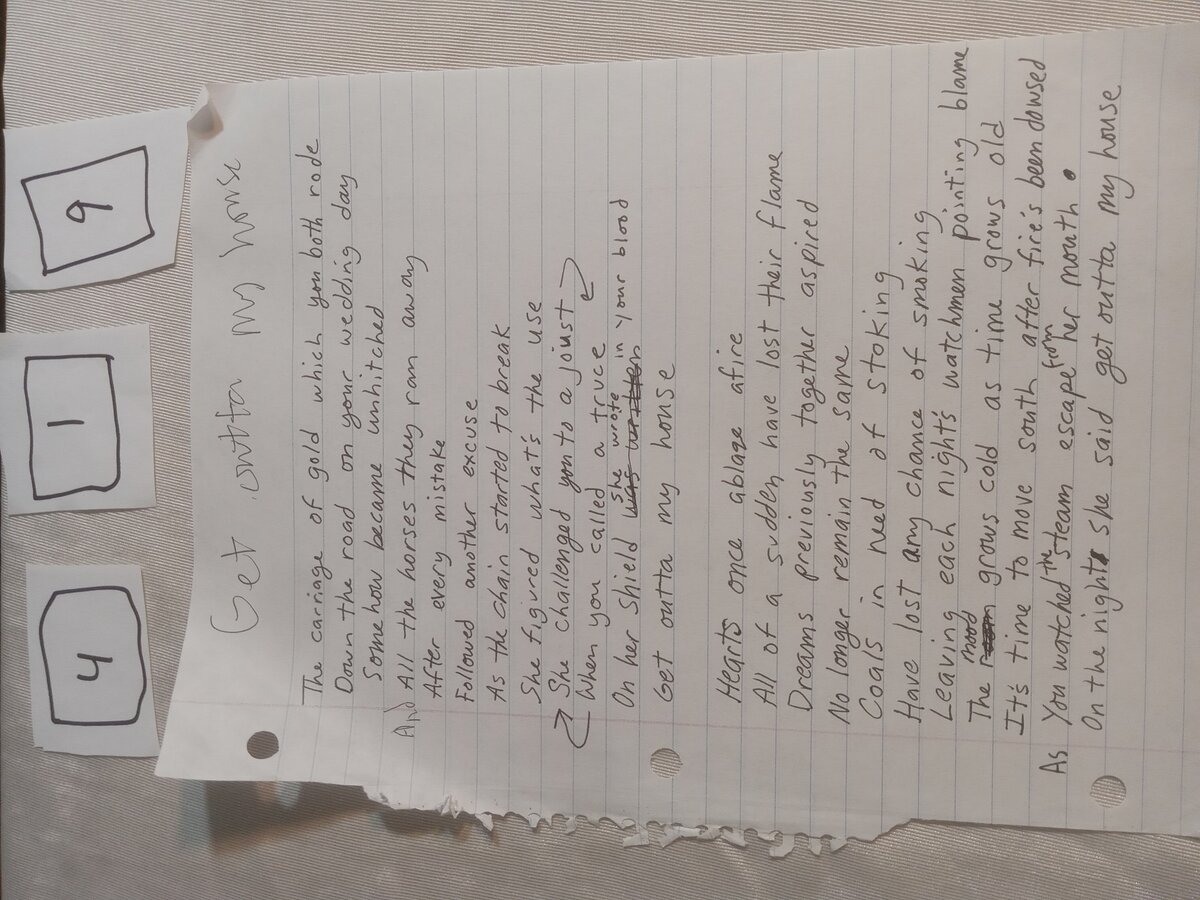 4 1 9
Get outta my house
The carriage of gold which you both rode
Down the road on your wedding day
Some how became unhitched
And All the horses they ran away
After every mistake
Followed another excuse
As the chain started to break
She figured what's the use
She challenged you to a joust
When you called a truce
On her shield she wrote in your blood
Get outta my house
Hearts once ablaze afire
All of a sudden have lost their flame
Dreams previously together aspired
No longer remain the same
Coals in need of stoking
Have lost any chance of smoking
Leaving each night's watchmen pointing blame
The mood grows cold as time grows old
It's time to move south after fire's been dowsed
As You watched the steam escape from her mouth
On the night she said get outta my house